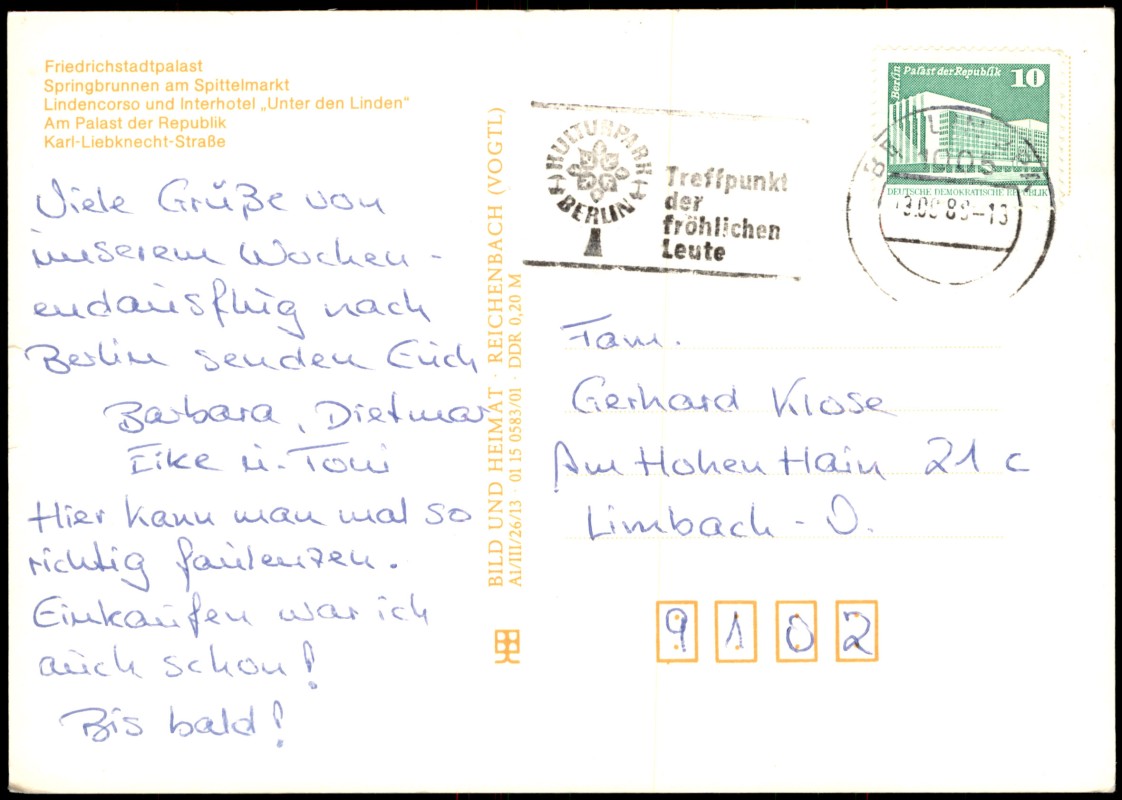 Friedrichstadtpalast
Springbrunnen am Spittelmarkt
Lindencorso und Interhotel „Unter den Linden“
Am Palast der Republik
Karl-Liebknecht-Straße
Viele Grüße von
unserem Wochen-
endausflug nach
Berlin senden Euch
Barbara, Dietmar
Eike u. Toni
Hier kann man mal so
richtig faulenzen.
Einkaufen war ich
auch schon!
Bis bald!
BILD UND HEIMAT · REICHENBACH (VOGTL)
A1/III/26/13 · 01 15 0583/01 · DDR 0,20 M
KULTURPARK
BERLIN
Treffpunkt
der
fröhlichen
Leute
Berlin
Palast der Republik
10
DEUTSCHE DEMOKRATISCHE REPUBLIK
1005
Fam.
Gerhard Klose
Am Hohen Hain 21 c
Limbach - O.
9102